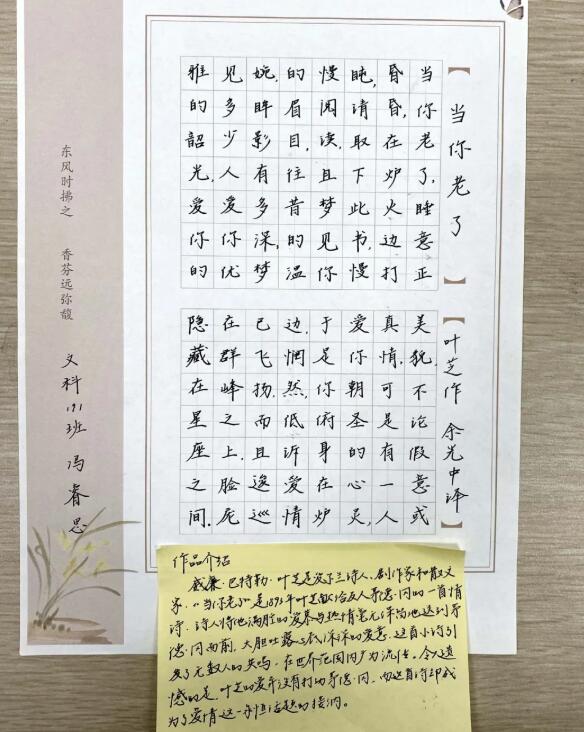 【当你老了】
【叶芝作 余光中译】
当你老了，睡意正
昏昏，在炉火边打
盹，请取下此书，慢
慢阅读，且梦见你
的眉目，往昔的温
婉，眸影有多深，梦
见多少人爱你优
雅的韶光，爱你的
美貌，不论假意或
真情，可是有一人
爱你朝圣的心灵，
于是你俯身在炉
边，惘然，低诉爱情
已飞扬，而且逡巡
在群峰之上，脸庞
隐藏在星座之间.
东风时拂之 香芬远弥馥
文科191班 冯睿思
作品介绍
威廉·巴特勒·叶芝是爱尔兰诗人、剧作家和散文
家，"当你老了"是1893年叶芝献给友人茅德·冈的一首情
诗。诗人将他满腔的爱慕与热情毫无保留地达到茅
德·冈面前，大胆吐露对她深深的爱意。这首小诗引
发了无数人的共鸣，在世界范围内广为流传。令人遗
憾的是，叶芝的爱并没有打动茅德·冈，而这首诗却成
为了爱情这一永恒话题的接纳。